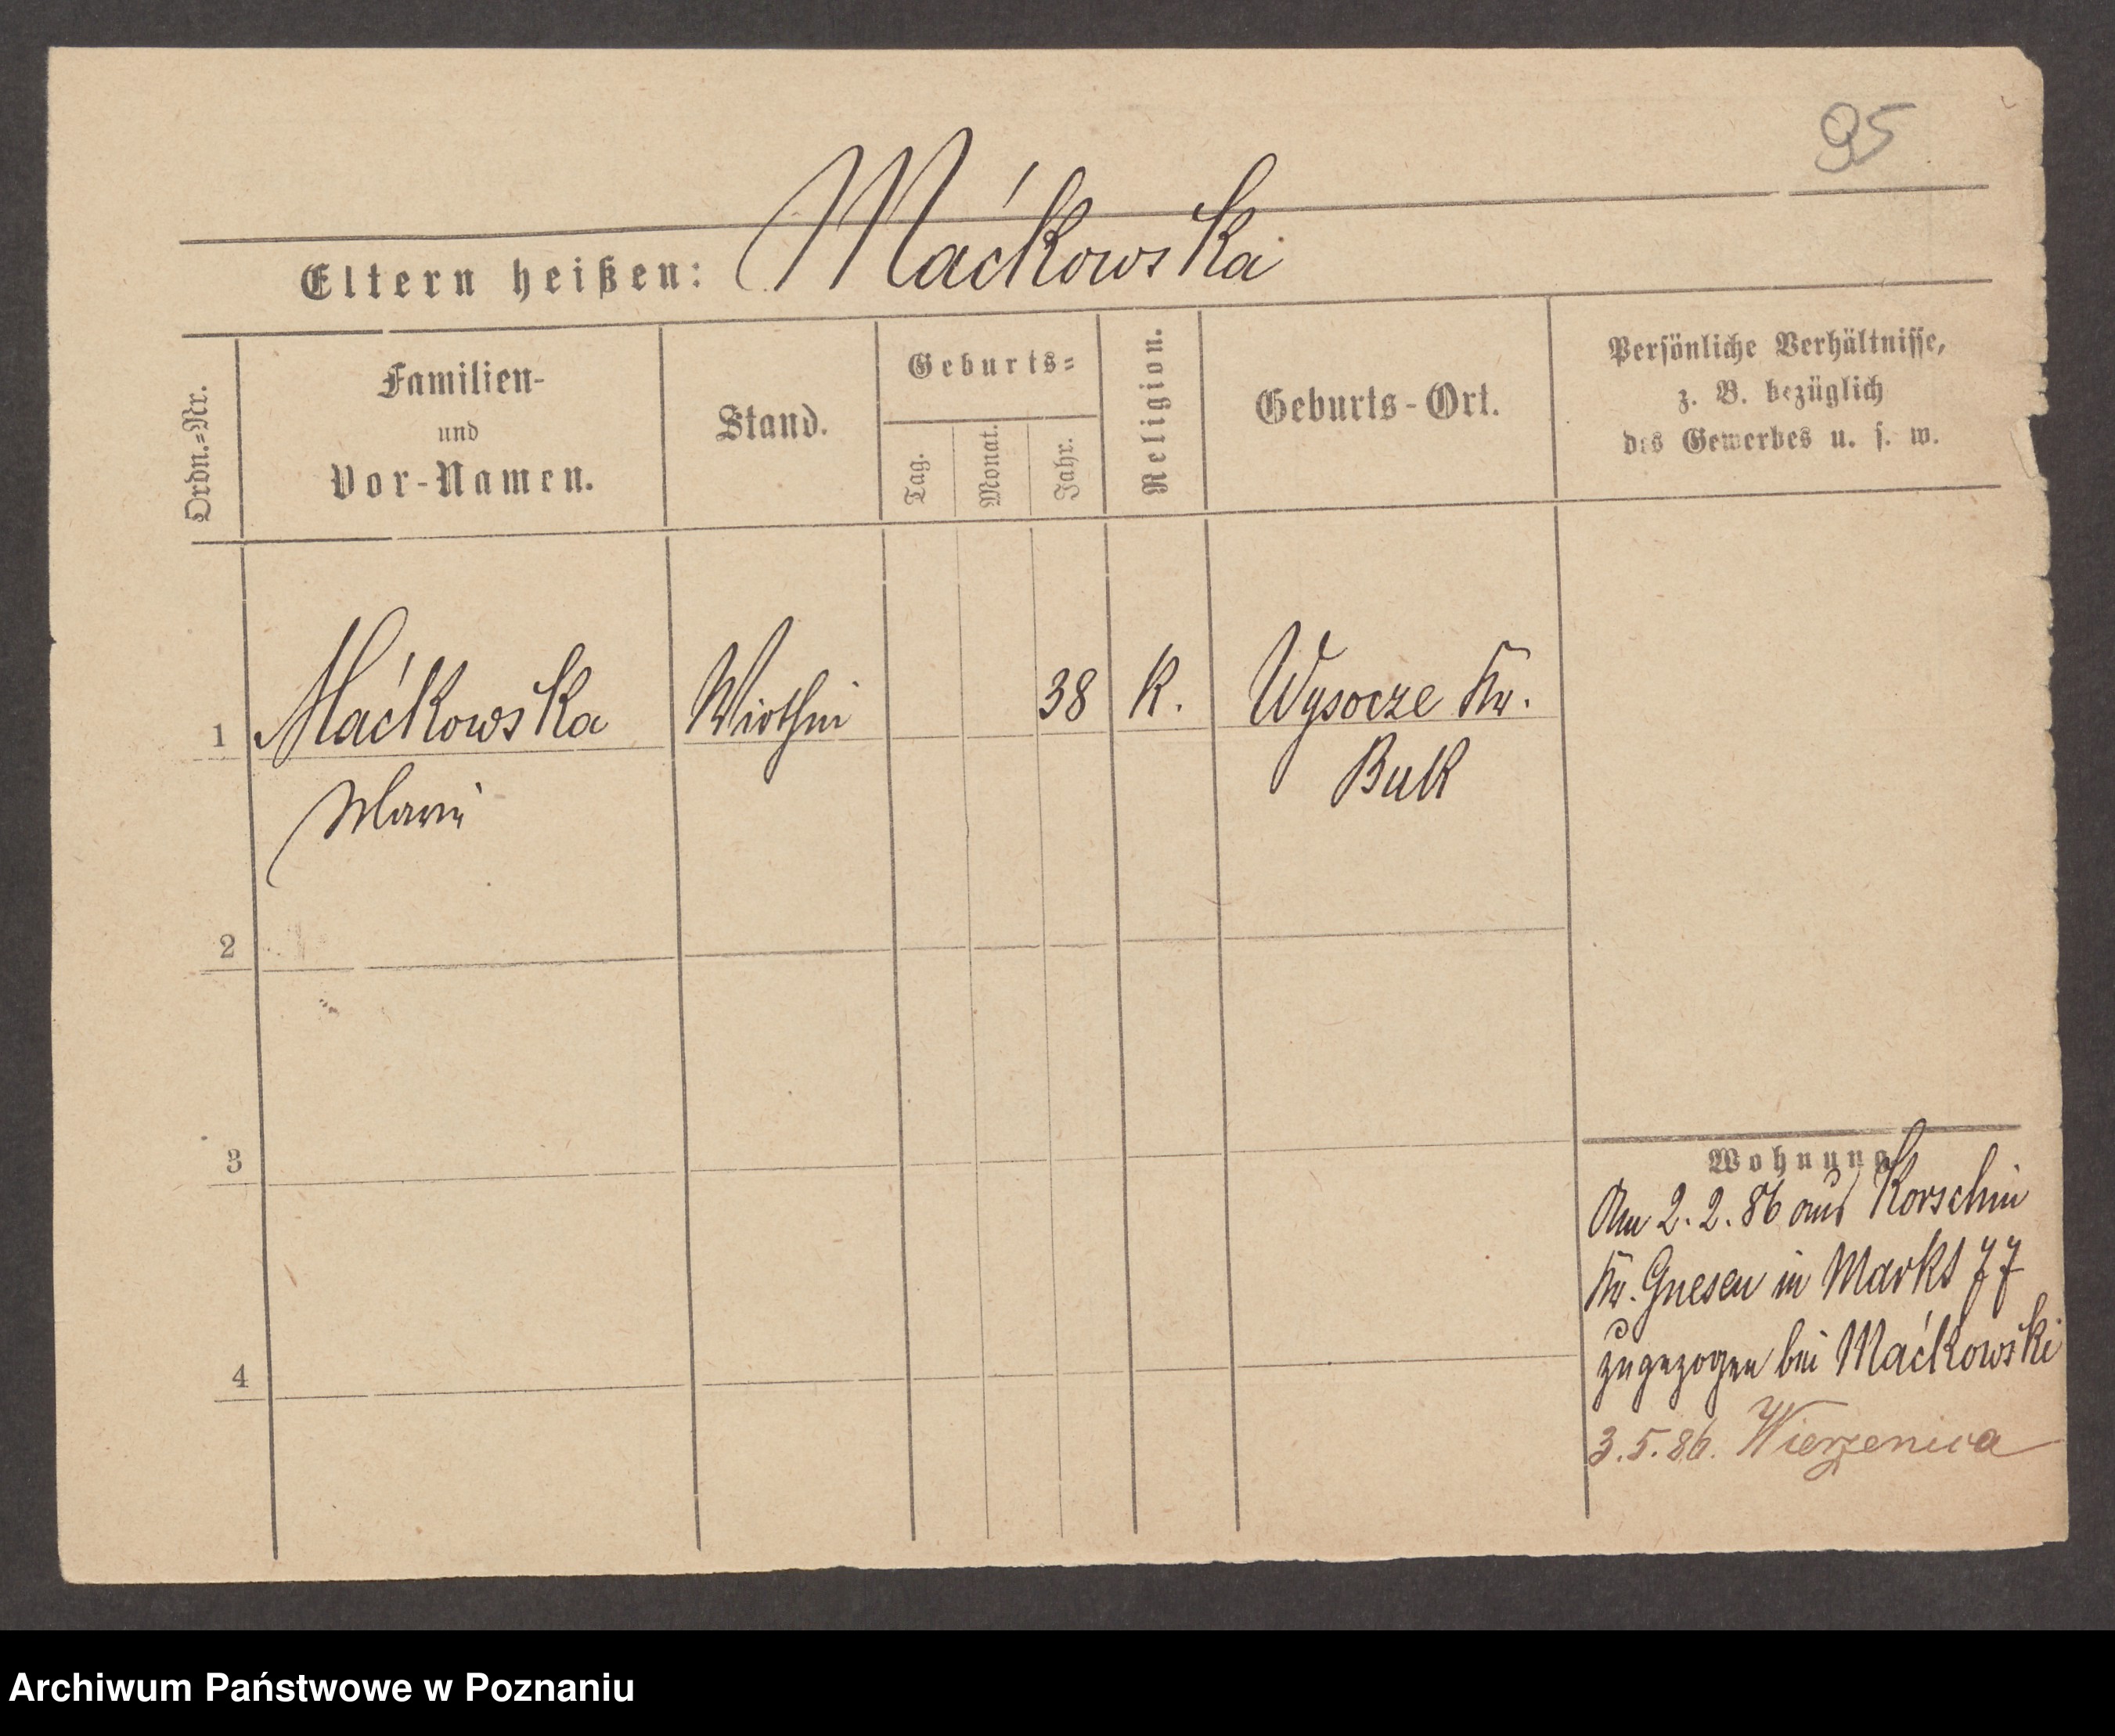 95
Eltern heißen: Maćkowska
Ordn.=Nr.
Familien-
und
Vor-Namen.
Stand.
Geburts=
Tag.
Monat.
Jahr.
Religion.
Geburts-Ort.
Persönliche Verhältnisse,
z. B. bezüglich
des Gewerbes u. s. w.
1 Maćkowska Wirthin 38 K. Wysocze Kr.
Marie Buk
2
3
4
Wohnung
Am 2. 2. 86 aus Korschin
Kr. Gnesen in Markt 77
zugezogen bei Maćkowski
3. 5. 86. Wierzenica
Archiwum Państwowe w Poznaniu